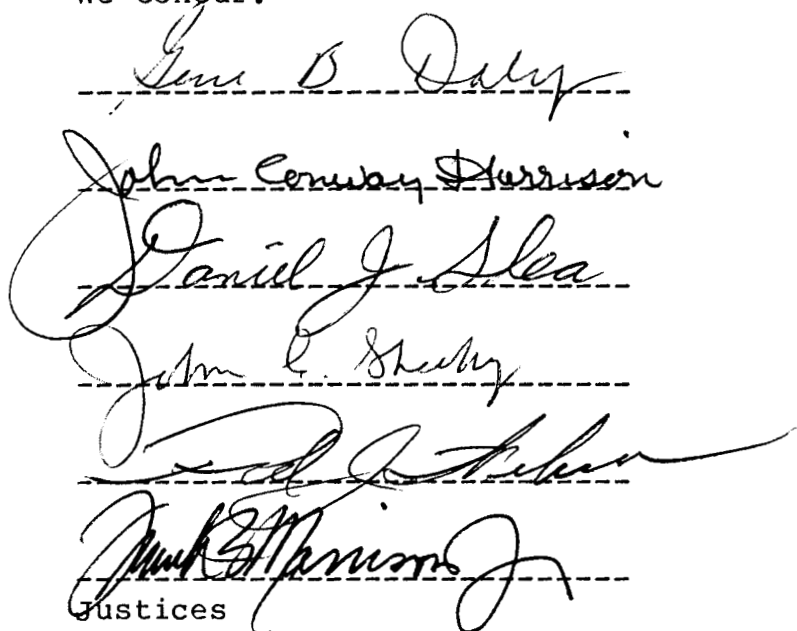 We concur:
Gene B Daly
John Conway Harrison
Daniel J. Shea
John C. Sheehy
J.
Frank B Morrison Jr
Justices